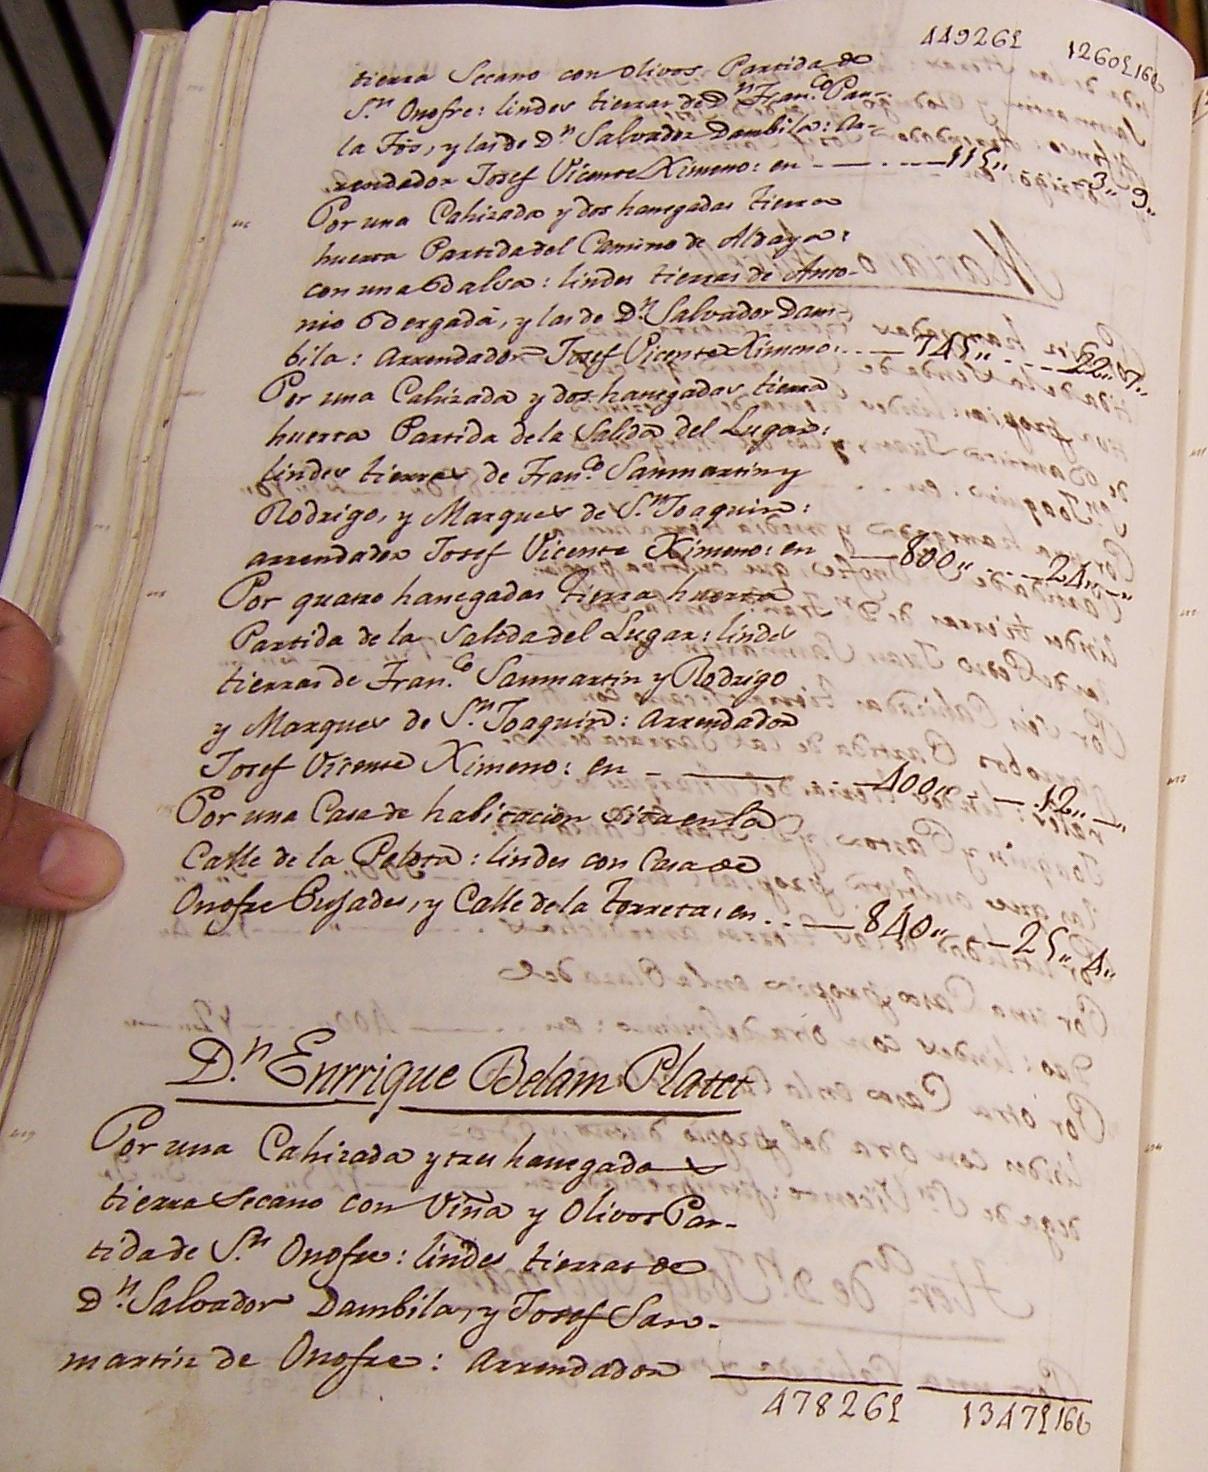 44926£ 1260£16s
tierra Secano con olivos Partida de
S.n Onofre: lindes tierras de D.n Fran.co Pau-
la Fos, y las de D.n Salvador Dambila: Ar-
rendador Josef Vicente Ximeno: en 115,, 3,, 9,,
Por una Cahizada y dos hanegadas tierra
huerta Partida del Camino de Aldaya:
con una Balsa: lindes tierras de Anto-
nio Bergadá, y las de D.n Salvador Dam-
bila: Arrendador Josef Vicente Ximeno: 745,, 22,, 7,,
Por una Cahizada y dos hanegadas tierra
huerta Partida de la Salida del Lugar:
lindes tierras de Fran.co Sanmartin y
Rodrigo, y Marques de S.n Joaquin:
arrendador Josef Vicente Ximeno: en 800,, 24,,
Por quatro hanegadas tierra huerta
Partida de la Salida del Lugar: lindes
tierras de Fran.co Sanmartin y Rodrigo
y Marques de S.n Joaquin: Arrendador
Josef Vicente Ximeno: en 400,, 12,,
Por una Casa de habitacion sita en la
Calle de la Pelota: lindes con Casa de
Onofre Cusades, y Calle de la Torreta: en 840,, 25,, 4,,
D.n Enrrique Belam Platet
Por una Cahizada y tres hanegadas
tierra Secano con Viña y Olivos Par-
tida de S.n Onofre: lindes tierras de
D.n Salvador Dambila, y Josef San-
martin de Onofre: Arrendador
47826£ 1347£16s